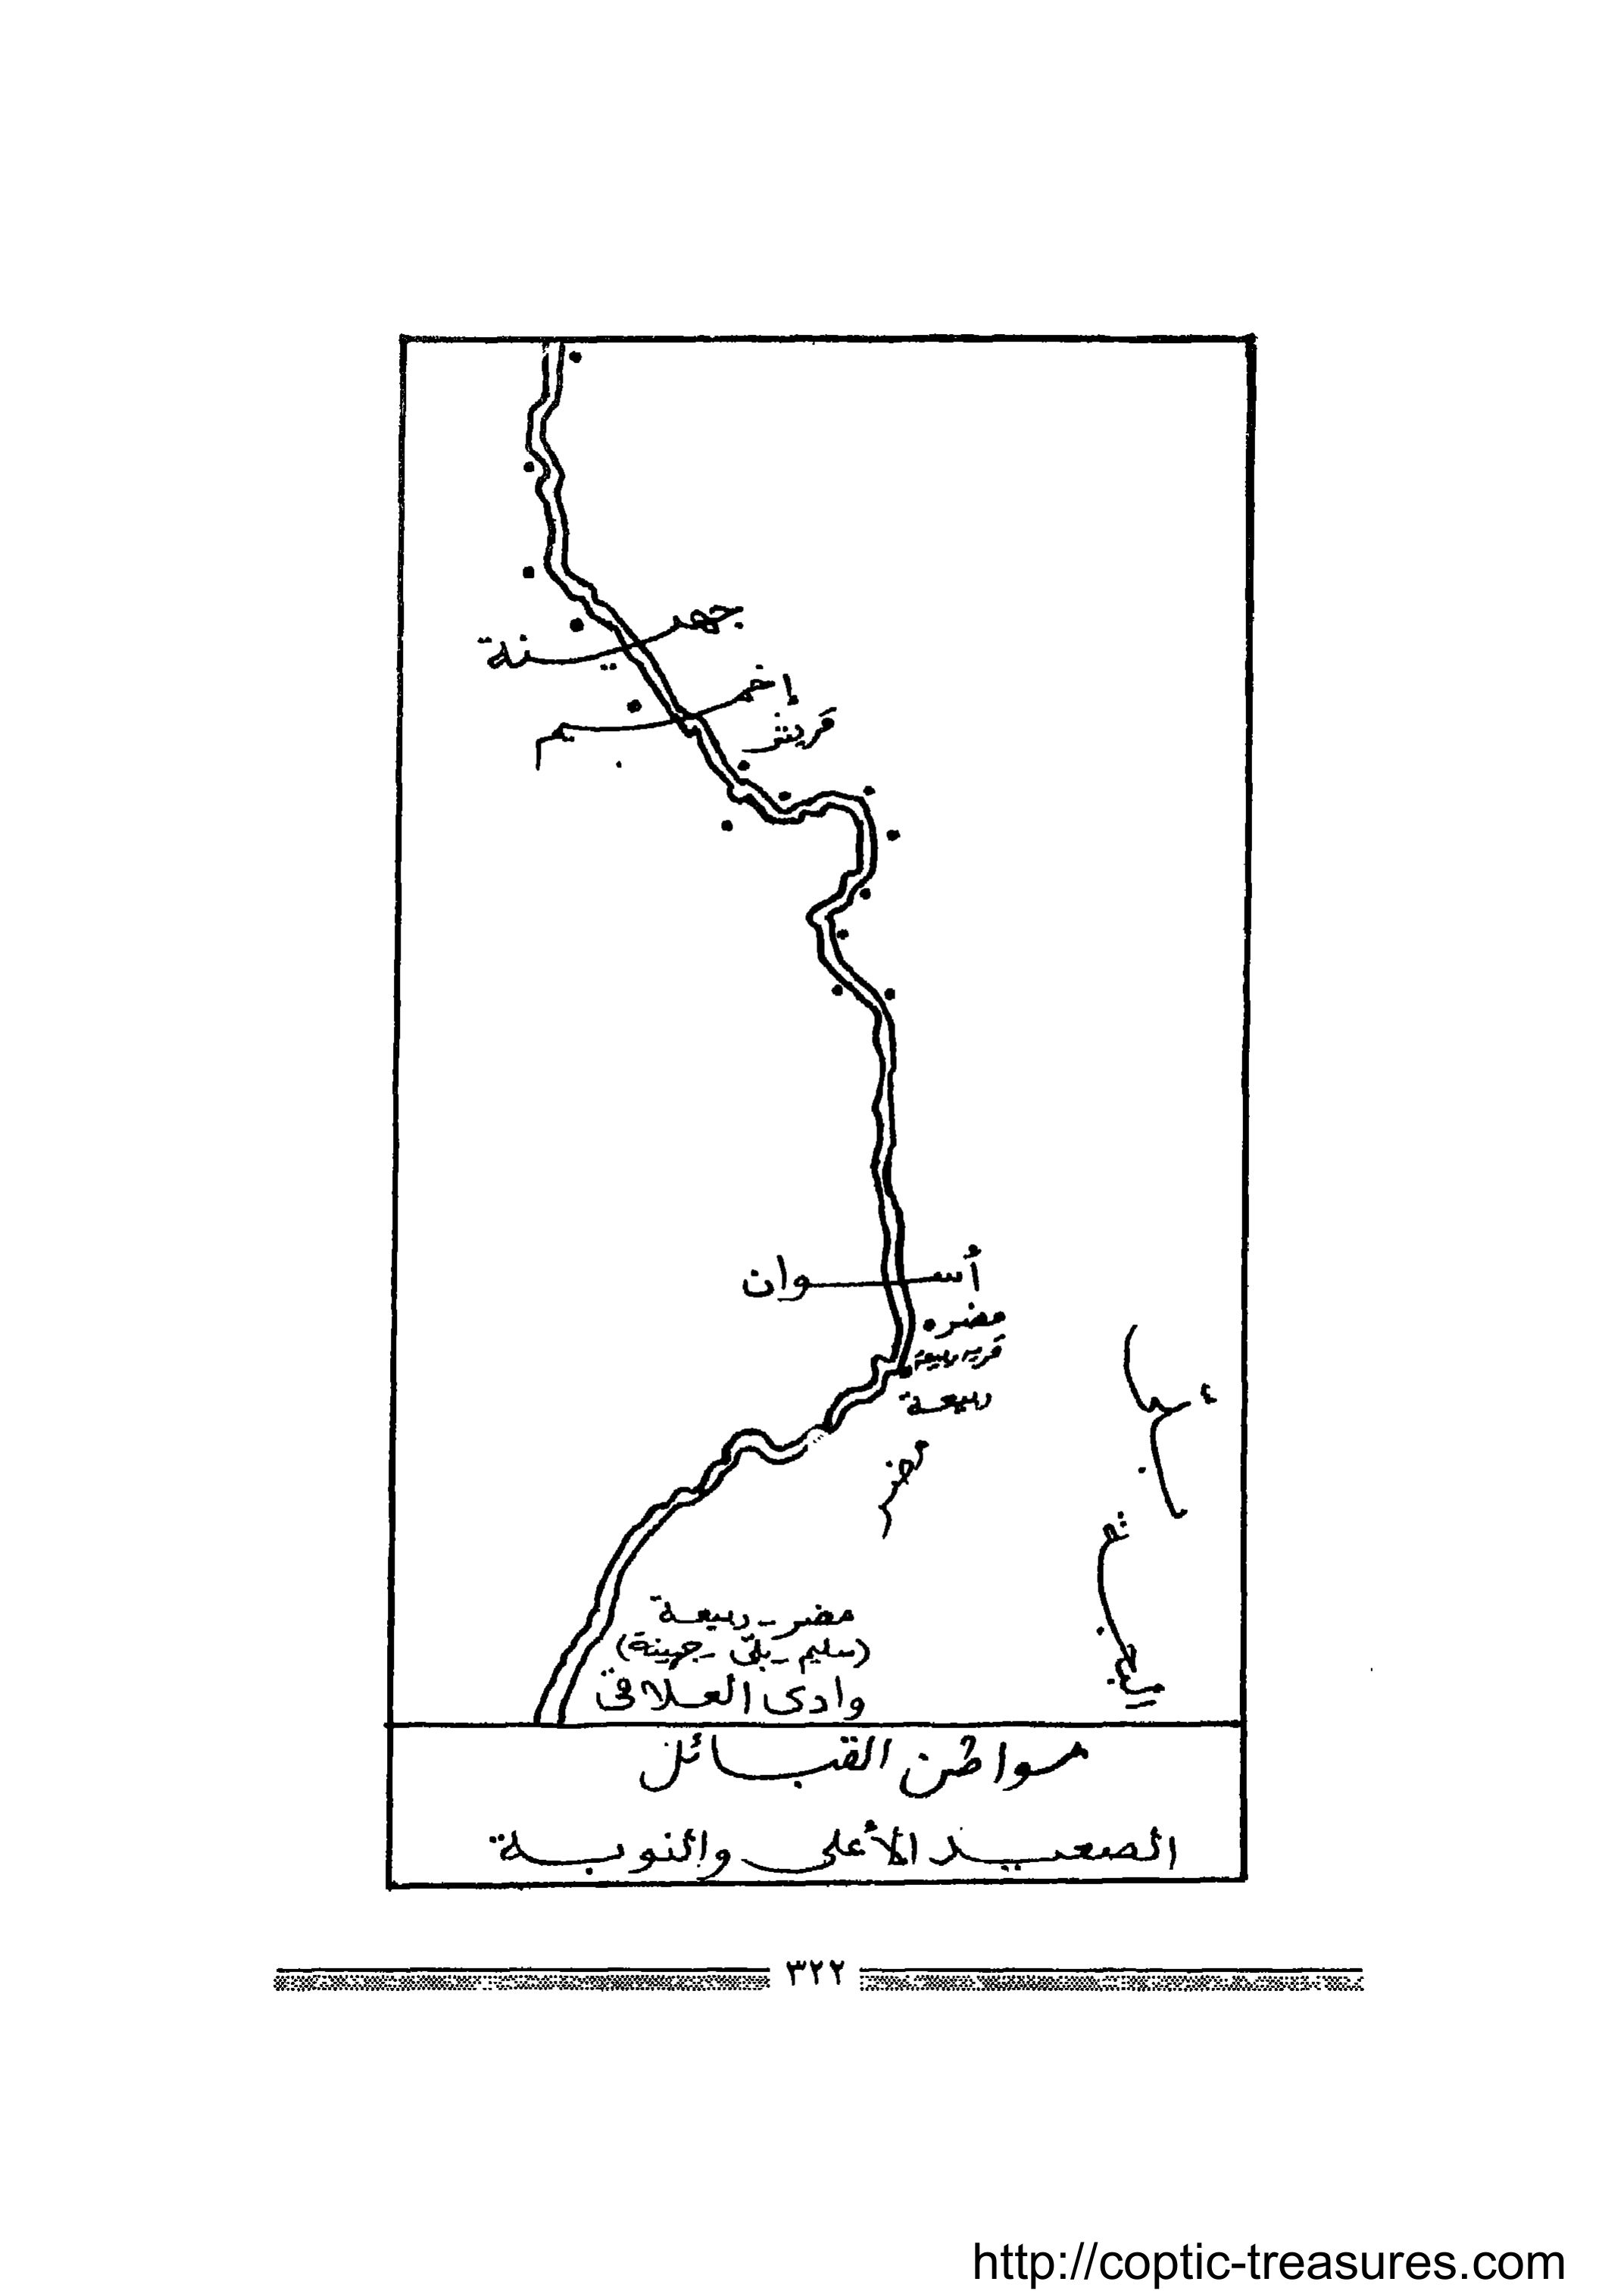 جهينة
إخميم
قريش
أسوان
مضر
قريه ربيعة
ربيعة
مضر
مضر - ربيعة
(سليم - بلى - جهينة)
وادى العلاقى
مواطن القبائل
الصعيد الأعلى والنوبة
٣٢٢
http://coptic-treasures.com